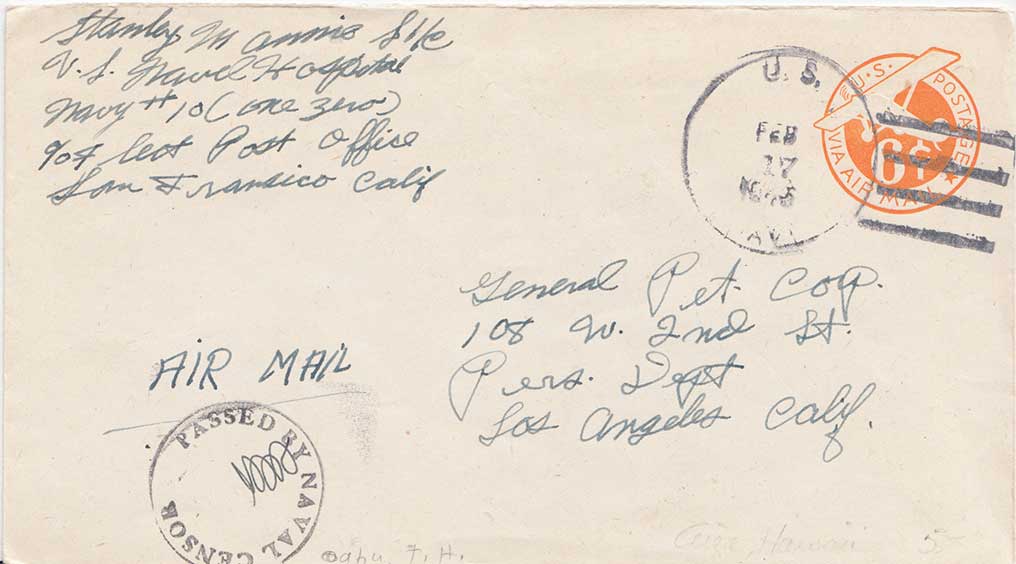 Stanley Mannis S1/c
U.S. Navel Hospital
Navy # 10 (one zero)
Post Office
San Fransico Calif
U.S.
FEB
17
1945
NAVY
U.S. POSTAGE
6¢
VIA AIR MAIL
General Pet. Corp.
108 W. 2nd St.
Pers. Dept
Los Angeles Calif.
AIR MAIL
PASSED BY NAVAL CENSOR
Oahu, T.H.
Hawaii 5-